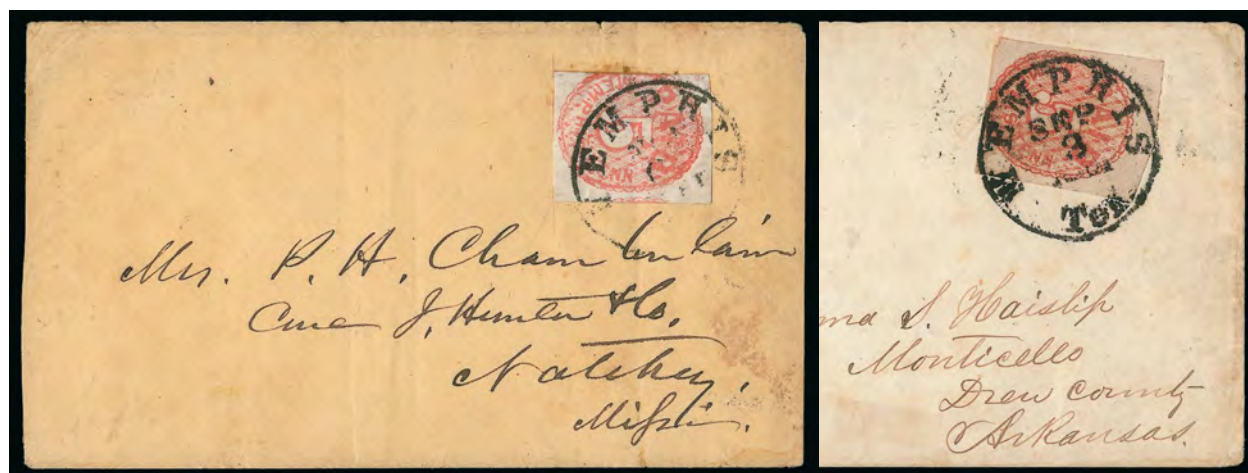 MEMPHIS
Mrs. P. H. Chamberlain
Care J. Hunter & Co.
Natchez,
Missi.
MEMPHIS
SEP
3
1861
Ten.
ma S. Haislip
Monticello
Drew County
Arkansas.